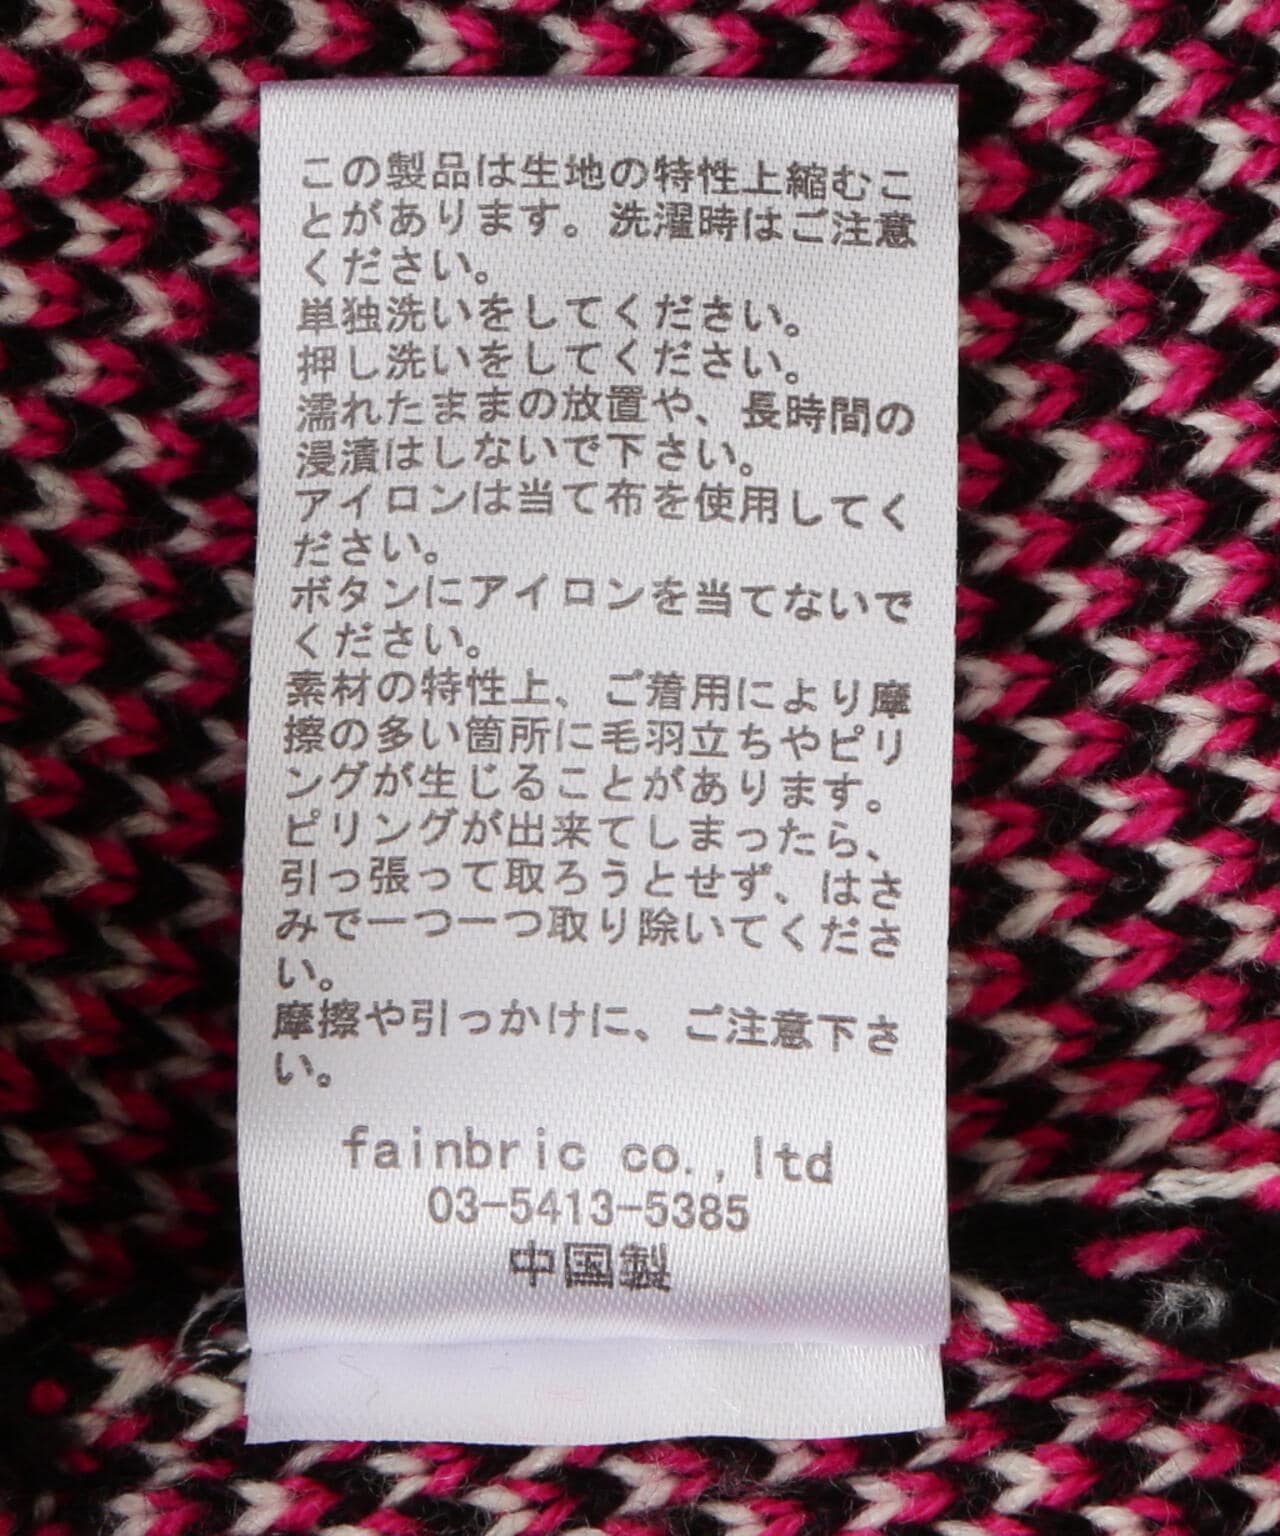 この製品は生地の特性上縮むこ
とがあります。洗濯時はご注意
ください。
単独洗いをしてください。
押し洗いをしてください。
濡れたままの放置や、長時間の
浸漬はしないで下さい。
アイロンは当て布を使用してく
ださい。
ボタンにアイロンを当てないで
ください。
素材の特性上、ご着用により摩
擦の多い箇所に毛羽立ちやピリ
ングが生じることがあります。
ピリングが出来てしまったら、
引っ張って取ろうとせず、はさ
みで一つ一つ取り除いてくださ
い。
摩擦や引っかけに、ご注意下さ
い。
fainbric co.,ltd
03-5413-5385
中国製